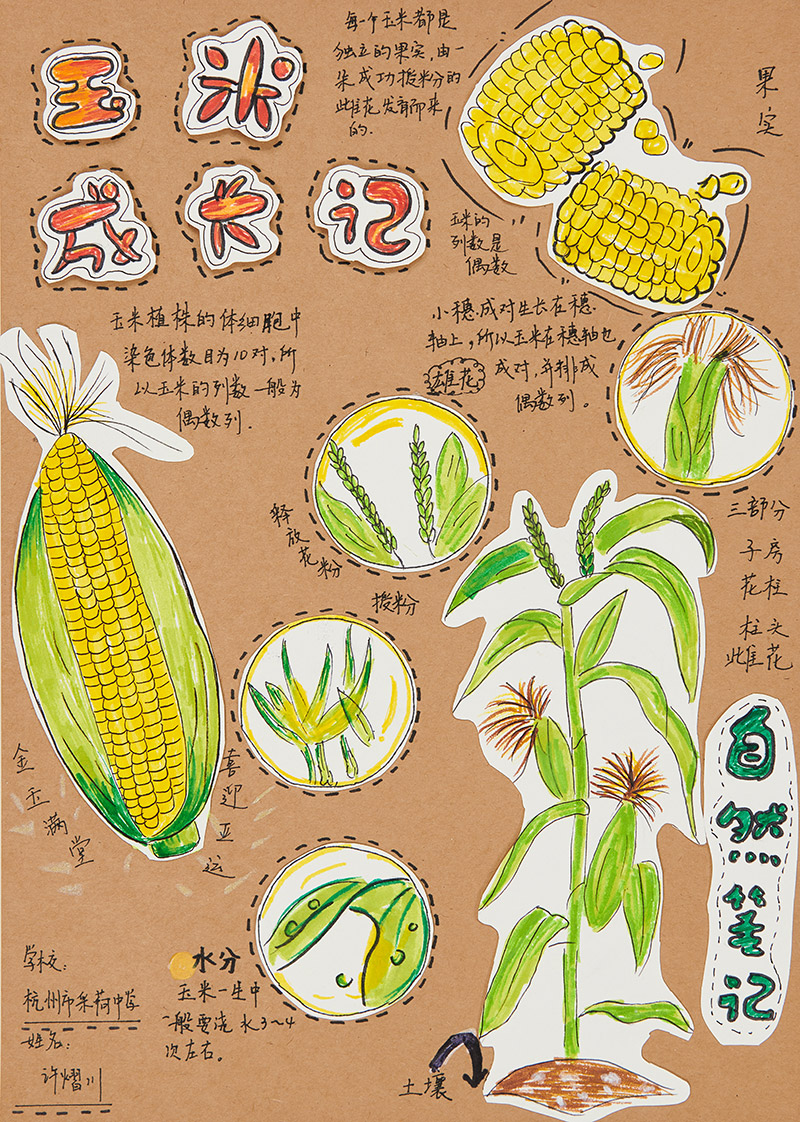 玉米
成长记
每一个玉米都是
独立的果实,由一
朵成功授粉的
雌花发育而来
的.
果实
玉米的
列数是
偶数
玉米植株的体细胞中
染色体数目为10对,所
以玉米的列数一般为
偶数列.
小穗成对生长在穗
轴上,所以玉米在穗轴也
成对,并排成
偶数列。
雄花
释放花粉
授粉
三部分
子房
花柱
柱头
雌花
自然笔记
金玉满堂
喜迎亚运
水分
玉米一生中
一般要浇水3~4
次左右。
土壤
学校:
杭州市采荷中学
姓名:
许熠川